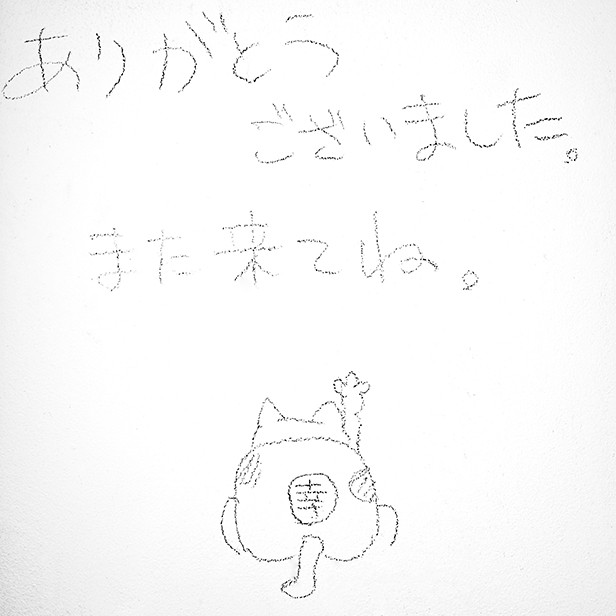 ありがとう
ございました。
また来てね。
幸